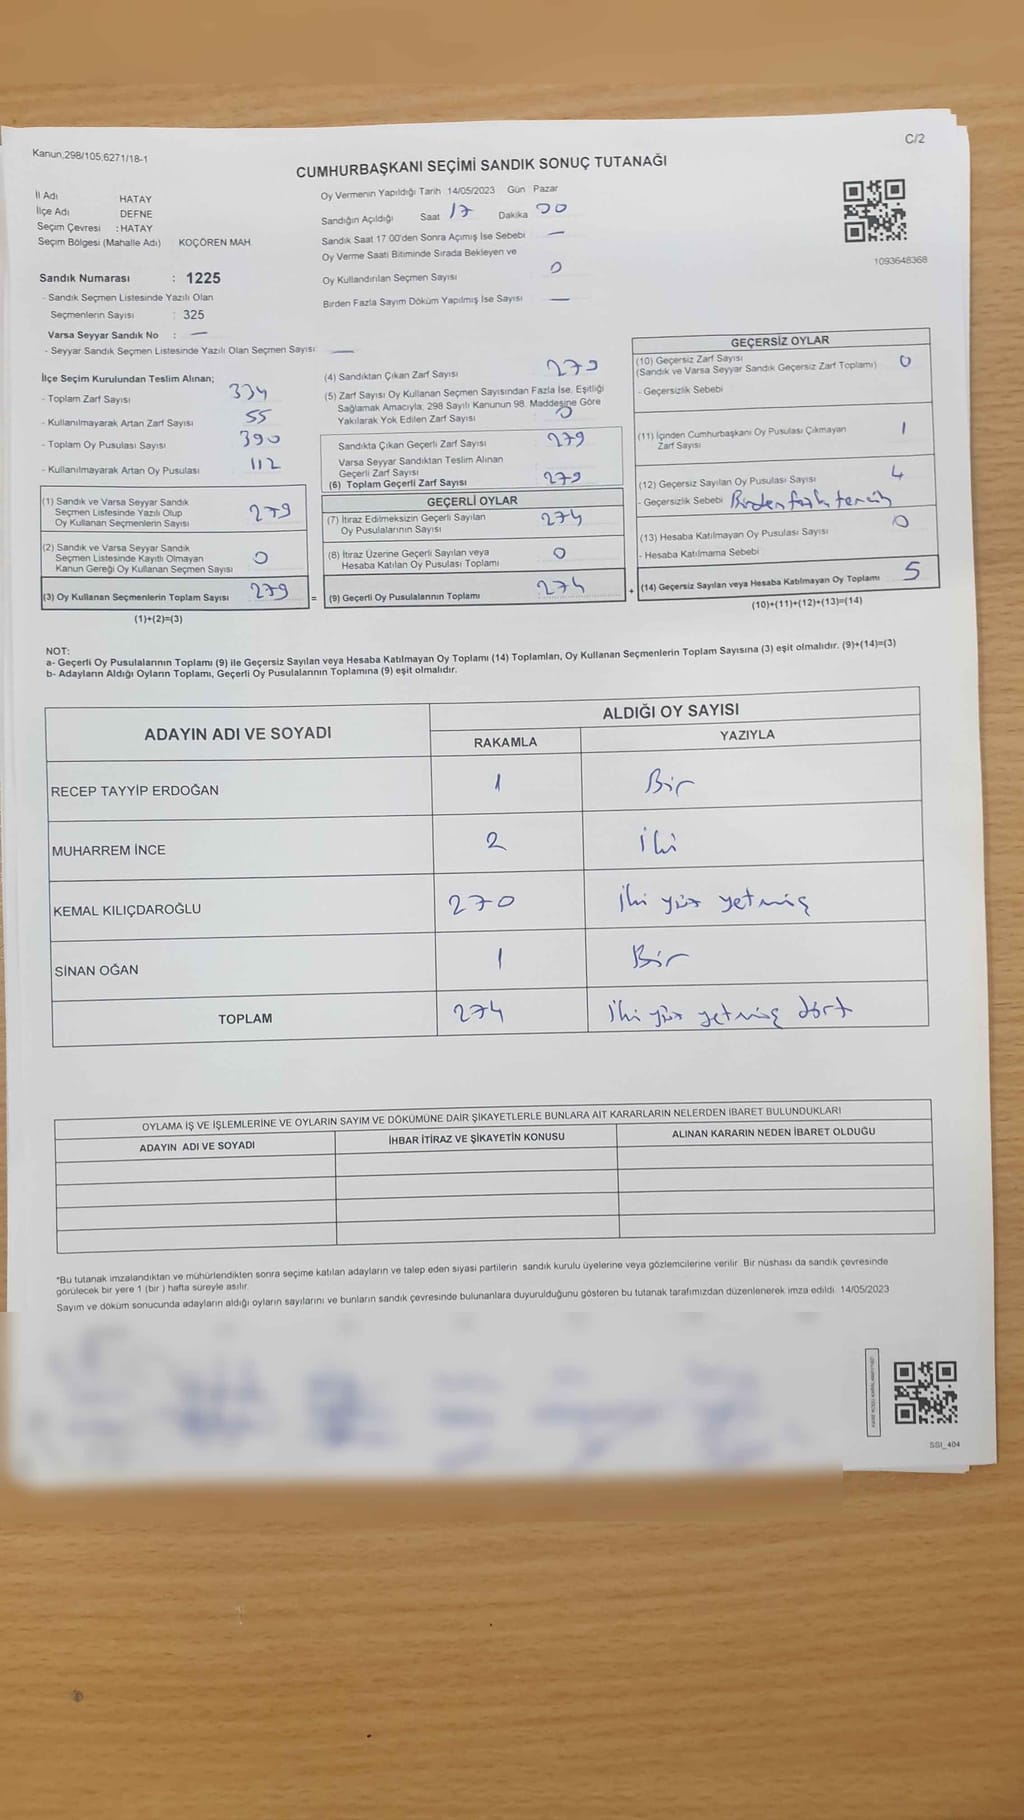 Kanun,298/105,6271/18-1
C/2
CUMHURBAŞKANI SEÇİMİ SANDIK SONUÇ TUTANAĞI
İl Adı HATAY
İlçe Adı DEFNE
Seçim Çevresi : HATAY
Seçim Bölgesi (Mahalle Adı) KOÇÖREN MAH.
Sandık Numarası : 1225
- Sandık Seçmen Listesinde Yazılı Olan
Seçmenlerin Sayısı : 325
Varsa Seyyar Sandık No : —
- Seyyar Sandık Seçmen Listesinde Yazılı Olan Seçmen Sayısı: —
Oy Vermenin Yapıldığı Tarih 14/05/2023 Gün Pazar
Sandığın Açıldığı Saat 17 Dakika 00
Sandık Saat 17:00'den Sonra Açımış İse Sebebi —
Oy Verme Saati Bitiminde Sırada Bekleyen ve
Oy Kullandırılan Seçmen Sayısı 0
Birden Fazla Sayım Döküm Yapılmış İse Sayısı —
1093648368
İlçe Seçim Kurulundan Teslim Alınan;
- Toplam Zarf Sayısı 334
- Kullanılmayarak Artan Zarf Sayısı 55
- Toplam Oy Pusulası Sayısı 390
- Kullanılmayarak Artan Oy Pusulası 112
(1) Sandık ve Varsa Seyyar Sandık
Seçmen Listesinde Yazılı Olup
Oy Kullanan Seçmenlerin Sayısı 279
(2) Sandık ve Varsa Seyyar Sandık
Seçmen Listesinde Kayıtlı Olmayan
Kanun Gereği Oy Kullanan Seçmen Sayısı 0
(3) Oy Kullanan Seçmenlerin Toplam Sayısı 279 =
(1)+(2)=(3)
(4) Sandıktan Çıkan Zarf Sayısı 279
(5) Zarf Sayısı Oy Kullanan Seçmen Sayısından Fazla İse, Eşitliği
Sağlamak Amacıyla; 298 Sayılı Kanunun 98. Maddesine Göre
Yakılarak Yok Edilen Zarf Sayısı 0
Sandıkta Çıkan Geçerli Zarf Sayısı 279
Varsa Seyyar Sandıktan Teslim Alınan
Geçerli Zarf Sayısı
(6) Toplam Geçerli Zarf Sayısı 279
GEÇERLİ OYLAR
(7) İtiraz Edilmeksizin Geçerli Sayılan
Oy Pusulalarının Sayısı 274
(8) İtiraz Üzerine Geçerli Sayılan veya
Hesaba Katılan Oy Pusulası Toplamı 0
(9) Geçerli Oy Pusulalarının Toplamı 274 +
GEÇERSİZ OYLAR
(10) Geçersiz Zarf Sayısı
(Sandık ve Varsa Seyyar Sandık Geçersiz Zarf Toplamı) 0
- Geçersizlik Sebebi
(11) İçinden Cumhurbaşkanı Oy Pusulası Çıkmayan
Zarf Sayısı 1
(12) Geçersiz Sayılan Oy Pusulası Sayısı 4
- Geçersizlik Sebebi Birden fazla tercih
(13) Hesaba Katılmayan Oy Pusulası Sayısı 0
- Hesaba Katılmama Sebebi
(14) Geçersiz Sayılan veya Hesaba Katılmayan Oy Toplamı 5
(10)+(11)+(12)+(13)=(14)
NOT:
a- Geçerli Oy Pusulalarının Toplamı (9) ile Geçersiz Sayılan veya Hesaba Katılmayan Oy Toplamı (14) Toplamları, Oy Kullanan Seçmenlerin Toplam Sayısına (3) eşit olmalıdır. (9)+(14)=(3)
b- Adayların Aldığı Oyların Toplamı, Geçerli Oy Pusulalarının Toplamına (9) eşit olmalıdır.
ADAYIN ADI VE SOYADI ALDIĞI OY SAYISI
RAKAMLA YAZIYLA
RECEP TAYYİP ERDOĞAN 1 Bir
MUHARREM İNCE 2 iki
KEMAL KILIÇDAROĞLU 270 iki yüz yetmiş
SİNAN OĞAN 1 Bir
TOPLAM 274 iki yüz yetmiş dört
OYLAMA İŞ VE İŞLEMLERİNE VE OYLARIN SAYIM VE DÖKÜMÜNE DAİR ŞİKAYETLERLE BUNLARA AİT KARARLARIN NELERDEN İBARET BULUNDUKLARI
ADAYIN ADI VE SOYADI İHBAR İTİRAZ VE ŞİKAYETİN KONUSU ALINAN KARARIN NEDEN İBARET OLDUĞU
*Bu tutanak imzalandıktan ve mühürlendikten sonra seçime katılan adayların ve talep eden siyasi partilerin sandık kurulu üyelerine veya gözlemcilerine verilir. Bir nüshası da sandık çevresinde
görülecek bir yere 1 (bir ) hafta süreyle asılır.
Sayım ve döküm sonucunda adayların aldığı oyların sayılarını ve bunların sandık çevresinde bulunanlara duyurulduğunu gösteren bu tutanak tarafımızdan düzenlenerek imza edildi. 14/05/2023
SSI_404